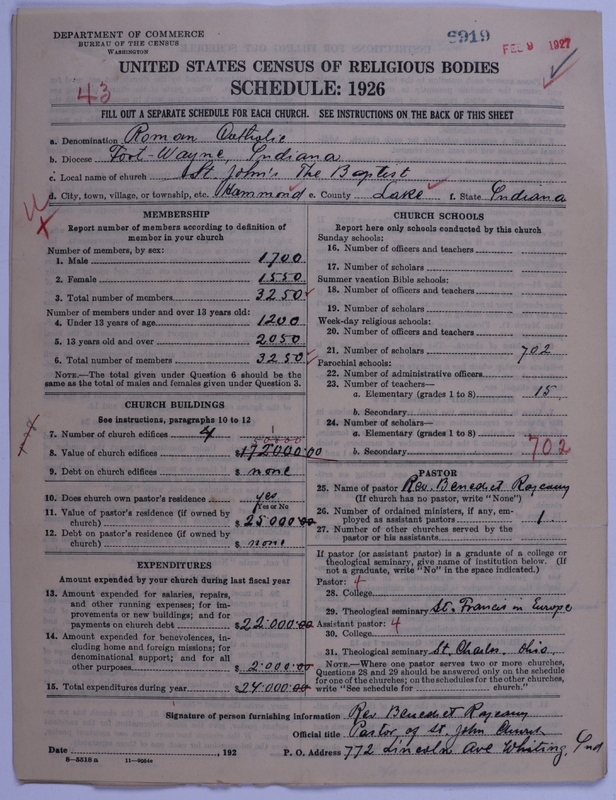 DEPARTMENT OF COMMERCE
BUREAU OF THE CENSUS
WASHINGTON
8919
FEB 9 1927
UNITED STATES CENSUS OF RELIGIOUS BODIES
SCHEDULE: 1926
43
FILL OUT A SEPARATE SCHEDULE FOR EACH CHURCH. SEE INSTRUCTIONS ON THE BACK OF THIS SHEET
a. Denomination Roman Catholic
b. Diocese Fort-Wayne, Indiana
c. Local name of church St John's The Baptist
d. City, town, village, or township, etc. Hammond e. County Lake f. State Indiana
MEMBERSHIP
Report number of members according to definition of
member in your church
Number of members, by sex:
1. Male 1700
2. Female 1550
3. Total number of members 3250
Number of members under and over 13 years old:
4. Under 13 years of age 1200
5. 13 years old and over 2050
6. Total number of members 3250
NOTE.—The total given under Question 6 should be the
same as the total of males and females given under Question 3.
CHURCH BUILDINGS
See instructions, paragraphs 10 to 12
7. Number of church edifices 4 1
8. Value of church edifices $172000.00
9. Debt on church edifices $ none
10. Does church own pastor's residence yes
Yes or No
11. Value of pastor's residence (if owned by
church) $25000.00
12. Debt on pastor's residence (if owned by
church) $ none
EXPENDITURES
Amount expended by your church during last fiscal year
13. Amount expended for salaries, repairs,
and other running expenses; for im-
provements or new buildings; and for
payments on church debt $22.000.00
14. Amount expended for benevolences, in-
cluding home and foreign missions; for
denominational support; and for all
other purposes $2.000.00
15. Total expenditures during year $24.000.00
CHURCH SCHOOLS
Report here only schools conducted by this church
Sunday schools:
16. Number of officers and teachers
17. Number of scholars
Summer vacation Bible schools:
18. Number of officers and teachers
19. Number of scholars
Week-day religious schools:
20. Number of officers and teachers
21. Number of scholars 702
Parochial schools:
22. Number of administrative officers
23. Number of teachers—
a. Elementary (grades 1 to 8) 15
b. Secondary
24. Number of scholars—
a. Elementary (grades 1 to 8) 702
b. Secondary
PASTOR
25. Name of pastor Rev. Benedict
(If church has no pastor, write "None")
26. Number of ordained ministers, if any, em-
ployed as assistant pastors 1
27. Number of other churches served by the
pastor or his assistants
If pastor (or assistant pastor) is a graduate of a college or
theological seminary, give name of institution below. (If
not a graduate, write "No" in the space indicated.)
Pastor: 4
28. College
29. Theological seminary St. Francis in Europe
Assistant pastor: 4
30. College
31. Theological seminary St. Charles. Ohio
NOTE.—Where one pastor serves two or more churches,
Questions 28 and 29 should be answered only on the schedule
for one of the churches; on the schedules for the other churches,
write "See schedule for church."
Signature of person furnishing information Rev Benedict
Official title Pastor of St. John Church
Date , 192 P. O. Address 772 Lincoln Ave Whiting, Ind
8—5518 a